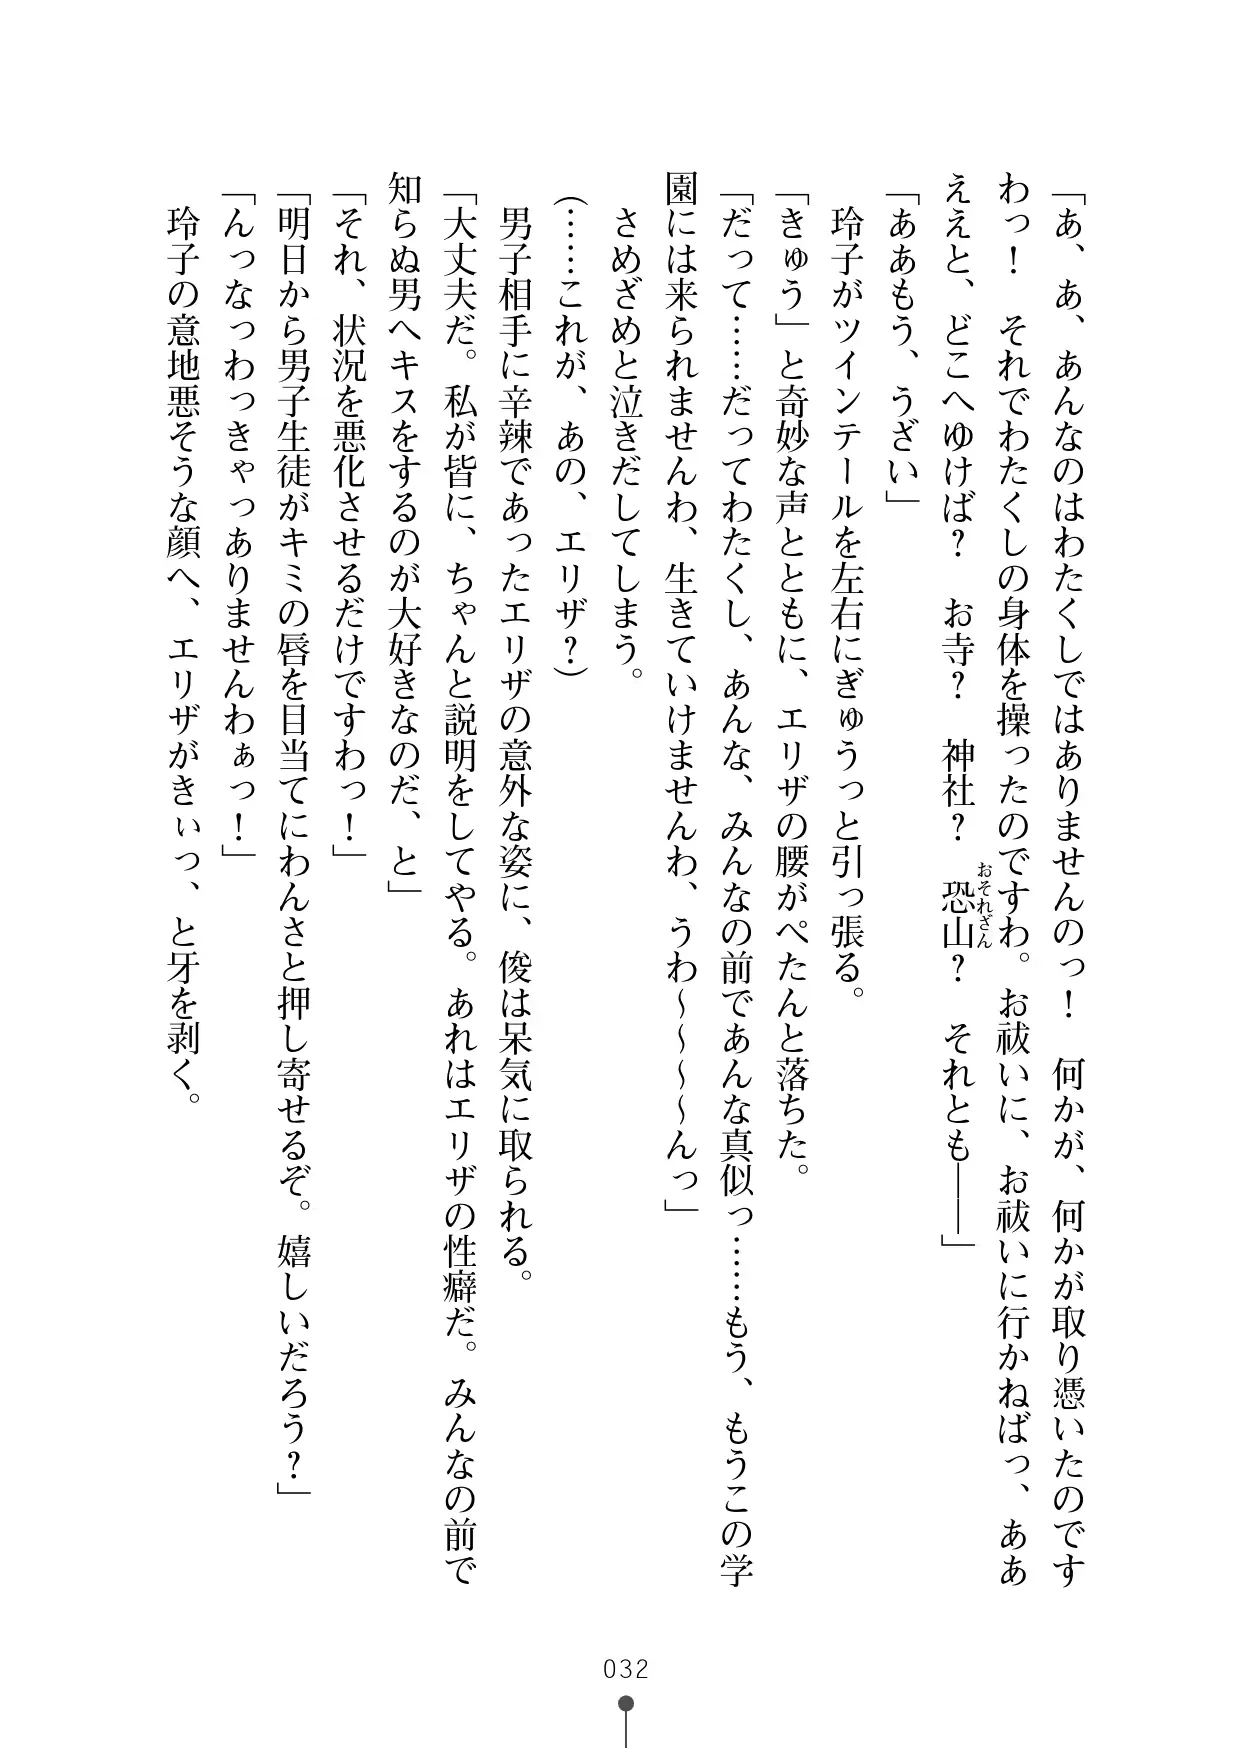 「あ、あ、あんなのはわたくしではありませんのっ！　何かが、何かが取り憑いたのです
わっ！　それでわたくしの身体を操ったのですわ。お祓いに、お祓いに行かねばっ、ああ
ええと、どこへゆけば？　お寺？　神社？　恐山？　それとも――」
おそれざん
「ああもう、うざい」
　玲子がツインテールを左右にぎゅうっと引っ張る。
「きゅう」と奇妙な声とともに、エリザの腰がぺたんと落ちた。
「だって……だってわたくし、あんな、みんなの前であんな真似っ……もう、もうこの学
園には来られませんわ、生きていけませんわ、うわ～～～～んっ」
　さめざめと泣きだしてしまう。
（……これが、あの、エリザ？）
　男子相手に辛辣であったエリザの意外な姿に、俊は呆気に取られる。
「大丈夫だ。私が皆に、ちゃんと説明をしてやる。あれはエリザの性癖だ。みんなの前で
知らぬ男へキスをするのが大好きなのだ、と」
「それ、状況を悪化させるだけですわっ！」
「明日から男子生徒がキミの唇を目当てにわんさと押し寄せるぞ。嬉しいだろう？」
「んっなっわっきゃっありませんわぁっ！」
　玲子の意地悪そうな顔へ、エリザがきぃっ、と牙を剥く。
032